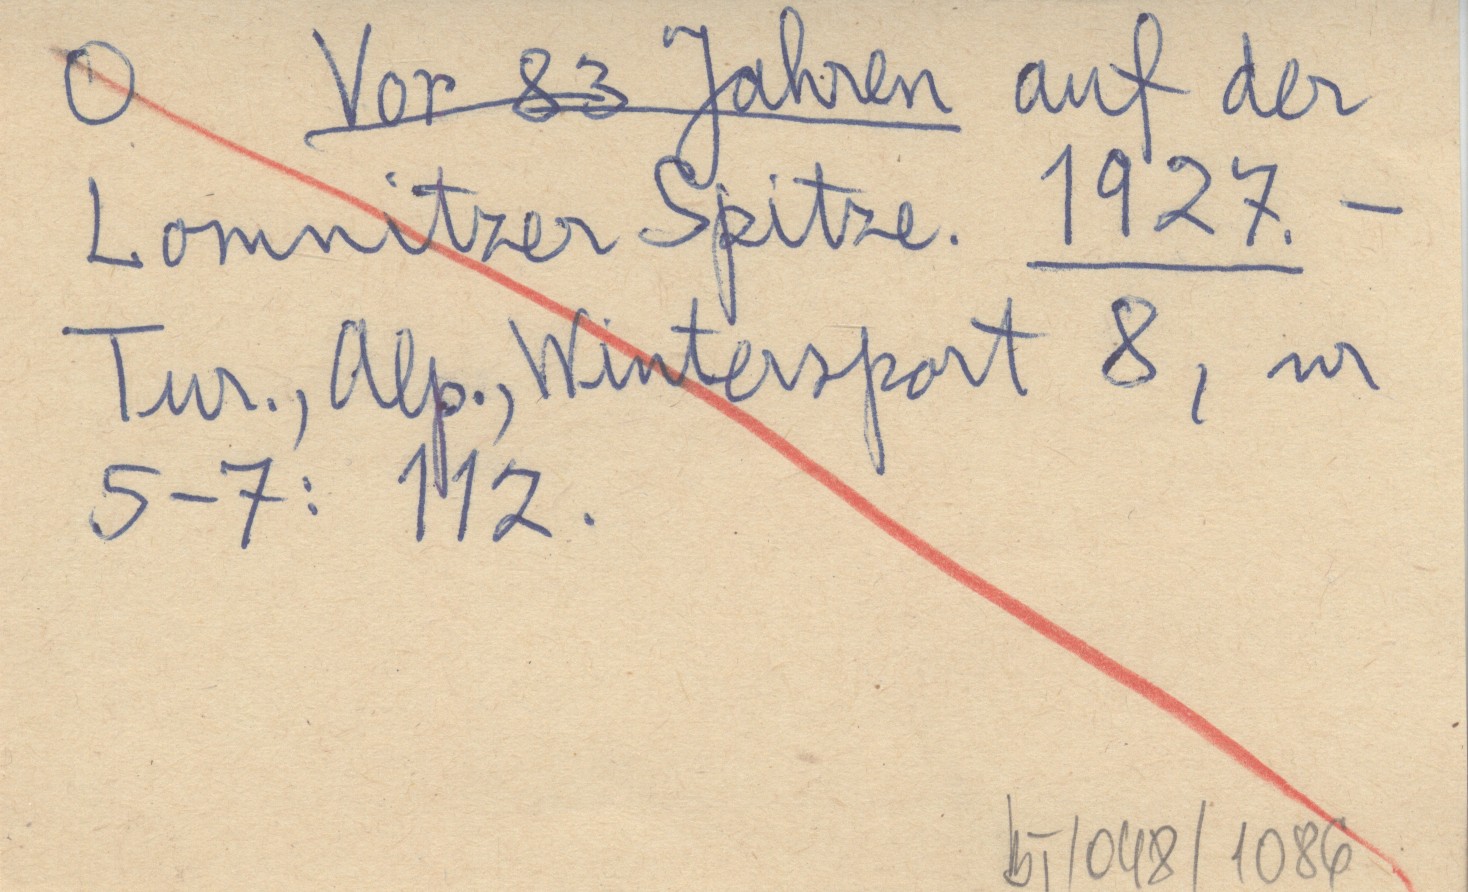 O Vor 83 Jahren auf der
Lomnitzer Spitze. 1927. -
Tur., Alp., Wintersport 8, nr
5-7: 112.
bI/048/1086